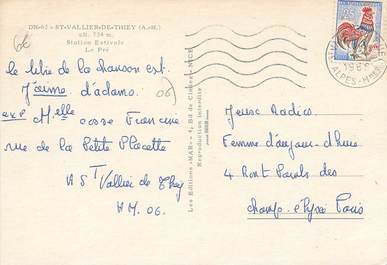 DN-62 - ST-VALLIER-DE-THEY (A.-M.)
alt. 724 m.
Station Estivale
Le Pré
6€
le titre de la chanson est
J'aime d'adamo. (06)
exp Melle cosse Francine
rue de la Petite Placette
A St Vallier de They
AM. 06.
Les Editions «MAR» - 4, Bd de Cimiez - NICE
Reproduction interdite
0,25
ALPES-M
Jeux Radios
Femme d'aujourd'hui
4 Ront Points des
champs elysée Paris